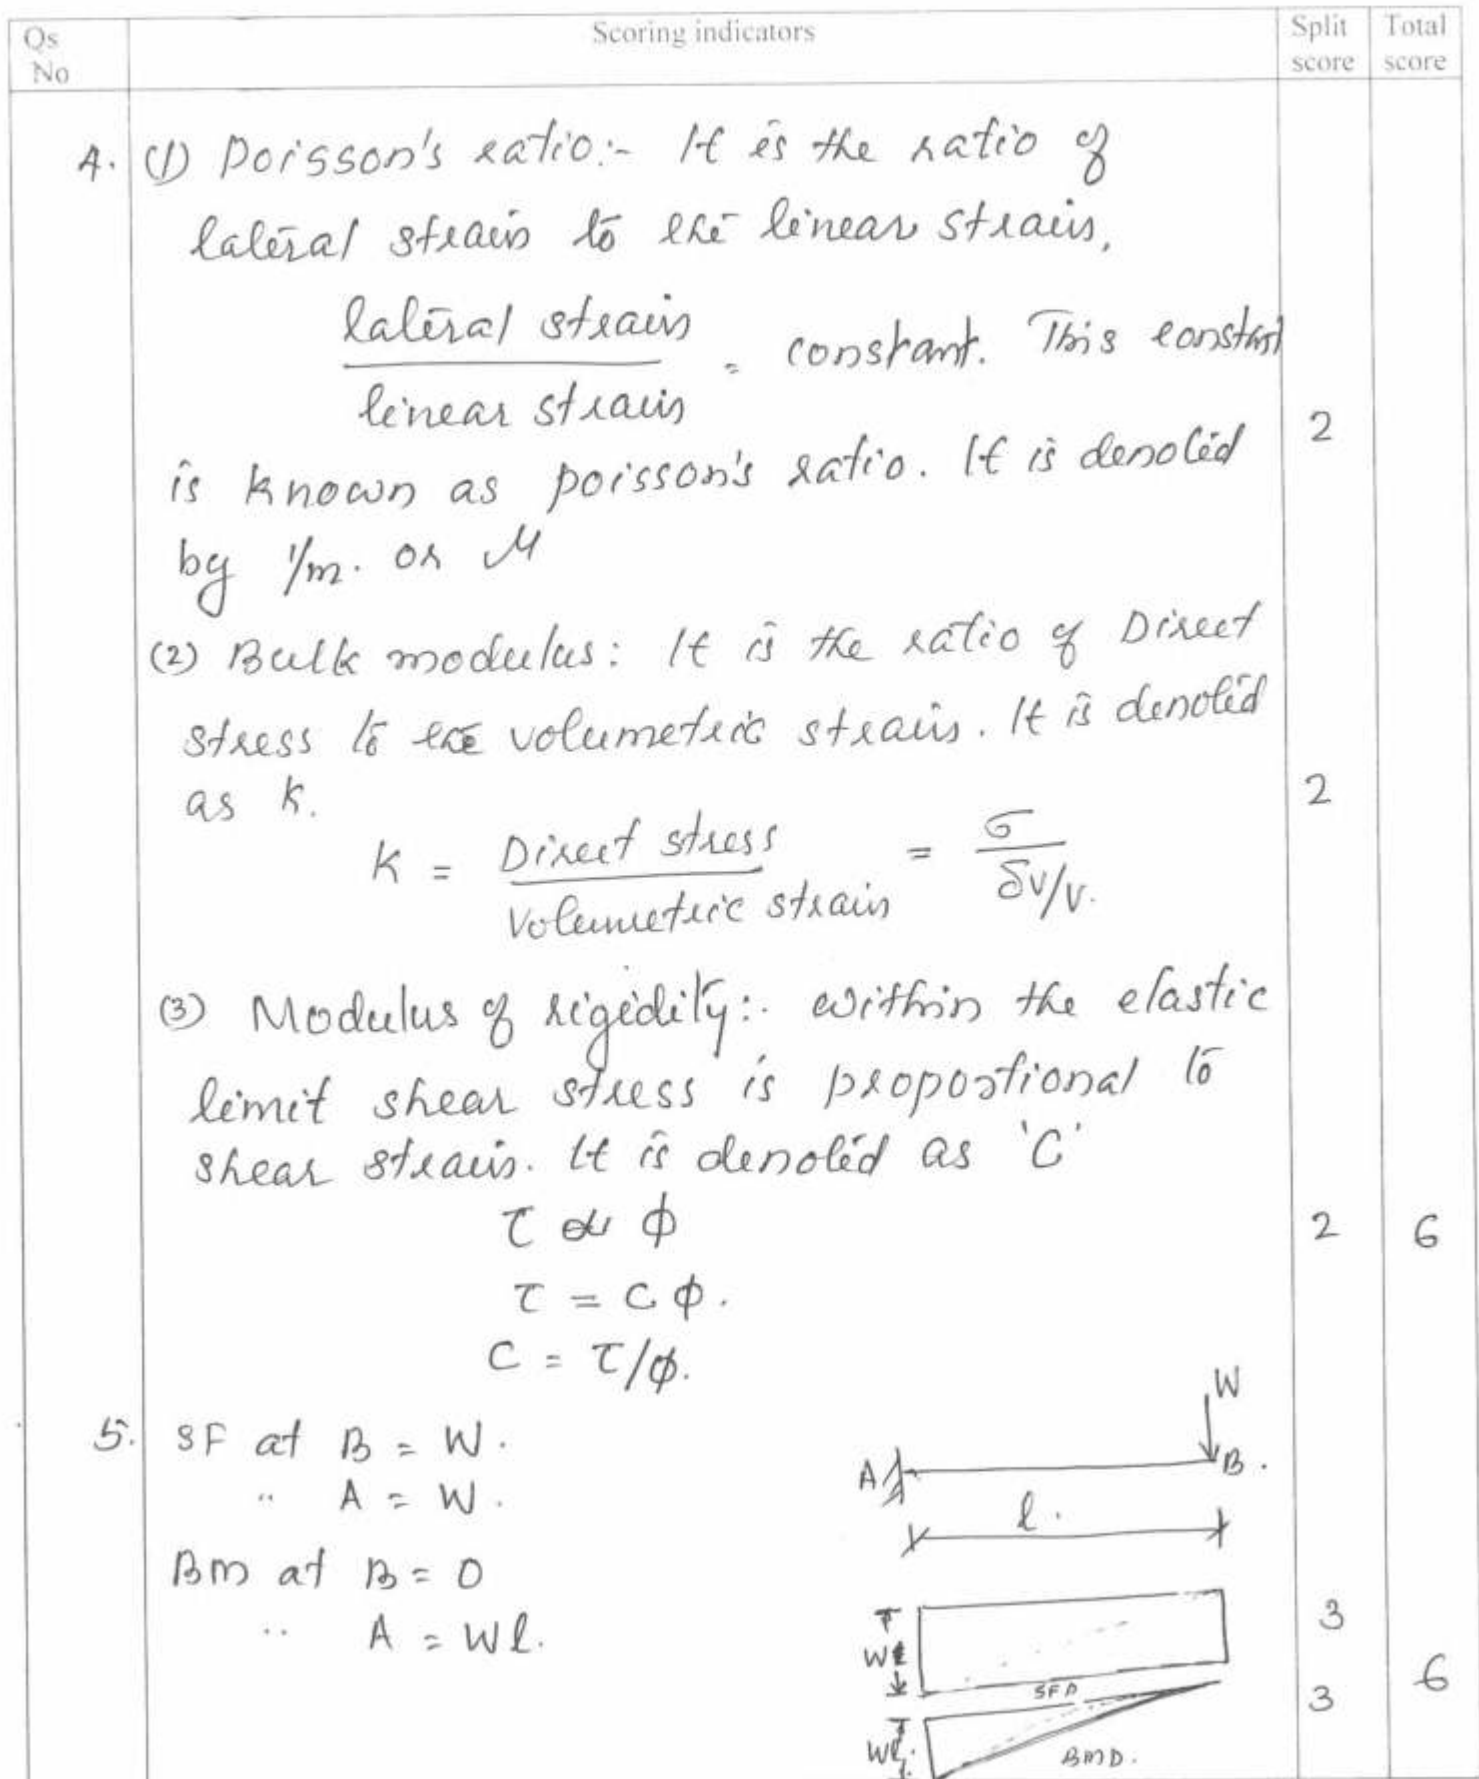 Qs No Scoring indicators Split score Total score
4. (1) Poisson's ratio:- It is the ratio of
lateral strain to the linear strain.
lateral strain / linear strain = constant. This constant
2
is known as poisson's ratio. It is denoted
by 1/m. or μ
(2) Bulk modulus: It is the ratio of Direct
stress to the volumetric strain. It is denoted
as K.
2
K = Direct stress / Volumetric strain = σ / δv/v.
(3) Modulus of rigidity:. within the elastic
limit shear stress is proportional to
shear strain. It is denoted as 'C'
τ α ϕ
2 6
τ = C ϕ.
C = τ/ϕ.
W
5. SF at B = W.
A B.
" A = W.
l.
BM at B = 0
3
" A = Wl.
W
SFD
3 6
Wl.
BMD.